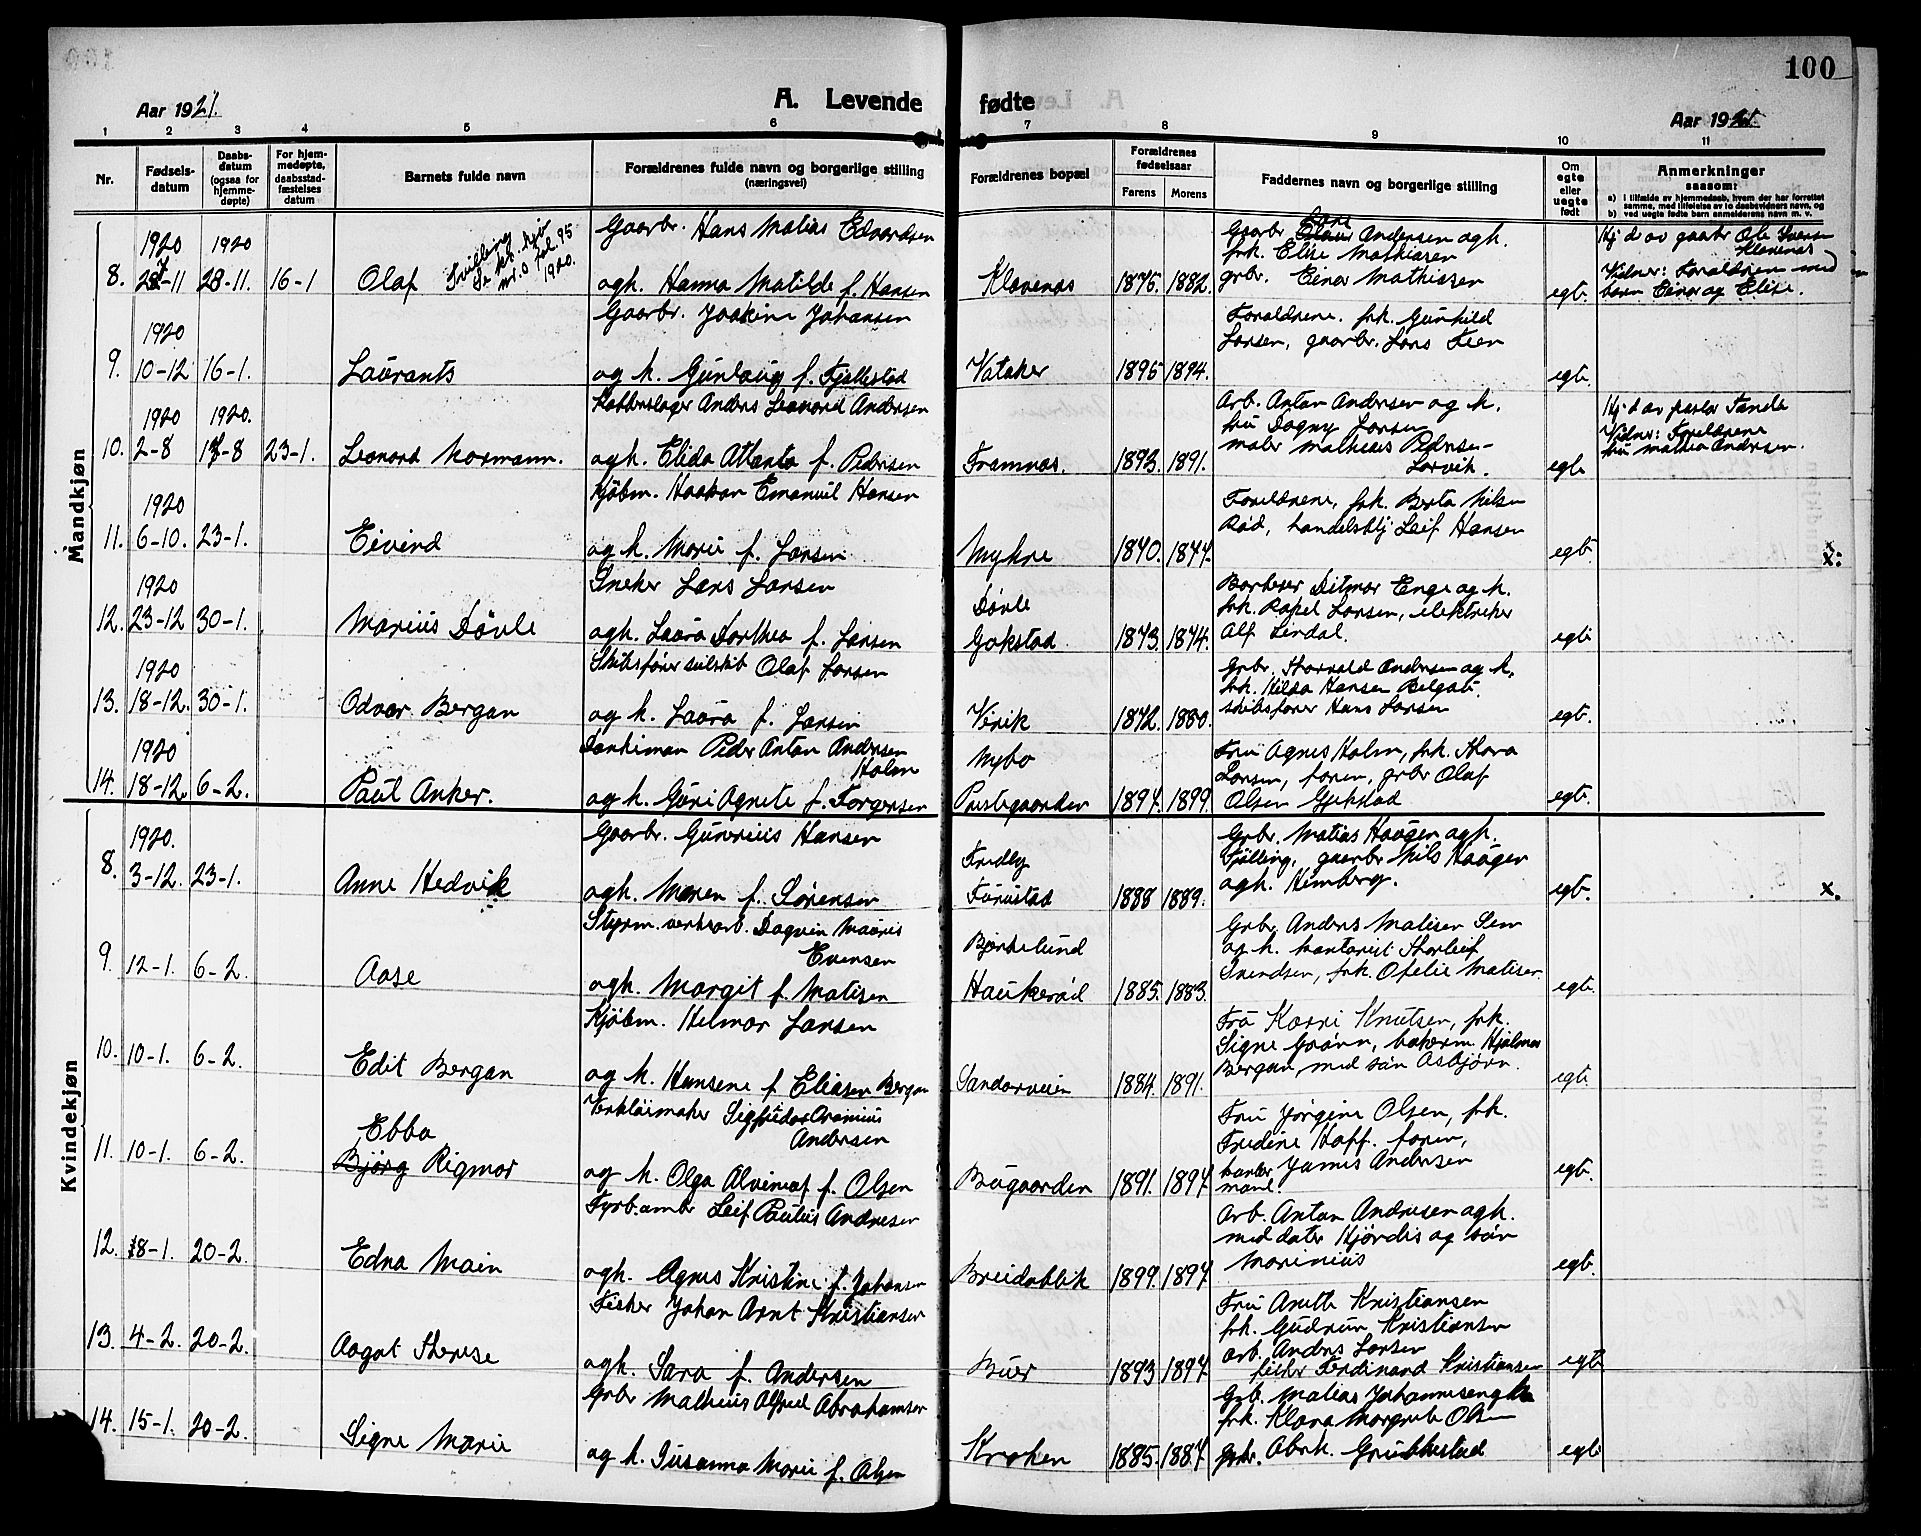 100
Aar 1921.
A. Levende fødte
Aar 1921.
1 2 3 4 5 6 7 8 9 10 11
Nr.
Fødsels-
datum
Daabs-
datum
(ogsaa for
hjemme-
døpte)
For hjem-
medøpte,
daabsstad-
fæstelses
datum
Barnets fulde navn
Forældrenes fulde navn og borgerlige stilling
(næringsvei)
Forældrenes bopæl
Forældrenes
fødselsaar
Farens Morens
Faddernes navn og borgerlige stilling
Om
egte
eller
uegte
født
Anmerkninger
saasom:
a) i tilfælde av hjemmedaab, hvem der har forrettet
samme, med tilføielse av to daabsvidners navn, og
b) ved uegte fødte barn anmelderens navn m. v.
Mandkjøn
1920 1920
8. 28-11 28-11. 16-1 Olaf
Tvilling
Se kv. kjøn
1920.
Gaarbr. Hans Matias Edvardsen
ogh. Hanna Matilde f. Hansen
Klavenæs 1875 1882.
Andersen ogh.
frk. Elise Mathiasen
grbr. Einar Mathiasen
egt.
Hj. d av gaarbr Ole
Klavenæs
Vidner: Forældrene med
barn Einar og Elise.
1920
9. 10-12 16-1. Laurants
Gaarbr. Joakim Johansen
og h. Gunlaug f. Fjellestad
Vataker 1895 1894.
Forældrene. frk. Gunhild
Larsen, gaarbr. Lars Feen
egt.
1920 1920.
10. 2-8 -8 23-1. Leonard Normann.
Kobberslager Anders Leonard Andersen
ogh. Elida Atlanta f. Pedersen
Framnæs. 1893. 1891.
Arb. Anton Andersen og h.
fru Dagny Larsen
maler Mathias Pedersen-
Larvik.
egt.
Hj. d av pastor Tande
Vidner: Forældrene
fru Mathea Andersen.
1920
11. 6-10. 23-1. Eivind
Kjøbm. Haakon Emanuel Hansen
og h. Marie f. Larsen
Nykne 1870. 1877.
Forældrene, frk. Berta Nilsen
Rød, handelsbtj Leif Hansen
egt. x.
1920
12. 23-12 30-1. Marius Døvle
Sneker Lars Larsen
ogh. Laura Dorthea f. Larsen
Døvle
Gokstad 1873. 1874.
Barberer Ditmar Enge og h.
frk. Rakel Larsen, elektriker
Alf Lindal.
egt.
1920
13. 18-12. 30-1. Odvar Bergan
Skibsfører Olaf Larsen
og h. Laura f. Larsen
Virik 1872. 1880.
Grbr. Thorvald Andersen og h.
frk. Hilda Hansen
skibsfører Hans Larsen
egt.
1920
14. 18-12. 6-2. Paul Anker.
Peder Anton Andersen
Holm
og h. Guri Agnete f. Torgersen
Nybo
Prestegaarden 1897. 1899.
Fru Agnes Holm, frk. Thora
Larsen, faren, grbr Olaf
Olsen Gjekstad
egt.
Kvindekjøn
1920.
8. 3-12. 23-1. Anne Hedvik
Gaarbr. Gunerius Hansen
ogh. Maren f. Sørensen
Fredly
Furustad 1888 1889.
Grbr. Matias Haugen ogh.
Fjelling, gaarbr Nils Haugen
ogh. Himberg.
egt. x.
9. 12-1. 6-2. Aase
Styrm. verksarb. Dagvin Mauris
Evensen
ogh. Margit f. Matisen
Bjørkelund
Haukerød 1885. 1883.
Grbr. Anders Matisen Sem
og h. kontorist Thorleif
Svendsen, frk. Ofelie Matisen
egt.
10. 10-1. 6-2. Edit Bergan
Kjøbm. Helmar Larsen
og h. Hansene f Eliasen Bergan
Sandarveien 1884. 1891.
Fru Karri Knutsen, frk.
Signe Grønn, bakerm. Hjalmar
Bergan, med søn Asbjørn.
egt.
Ebba
11. 10-1. 6-2. Bjørg Rigmor
Verktøimaker Sigfridar Aronius
Andersen
og h. Olga Alvine f. Olsen
Bugaarden 1891. 1897.
Fru Jørgine Olsen, frk.
Fredine Hoff. faren,
James Andersen
egt.
12. 8-1. 20-2. Edna Main
Fyrb.amb Leif Paulus Andresen
ogh. Agnes Kristine f. Johansen
Breidablik 1899. 1897.
Arb. Anton Andresen ogh.
med dater Hjørdis og søn
Marinius
egt.
13. 4-2. 20-2. Aagot Therese
Fisker Johan Arnt Kristiansen
ogh. Sara f. Andersen
Buer 1893 1897.
Fru Anette Kristiansen
frk. Gudrun Kristiansen
arb. Anders Larsen
fisker Ferdinand Kristiansen
egt.
14. 15-1. 20-2. Signe Marie
Grbr Matheus Alfred Abrahamsen
og h. Susanna Marie f. Olsen
Kroken 1885. 1887.
Grbr. Matias Johannesen ogh
frk. Klara Margrete Olsen
grbr. Abrh. Grubbestad
egt.